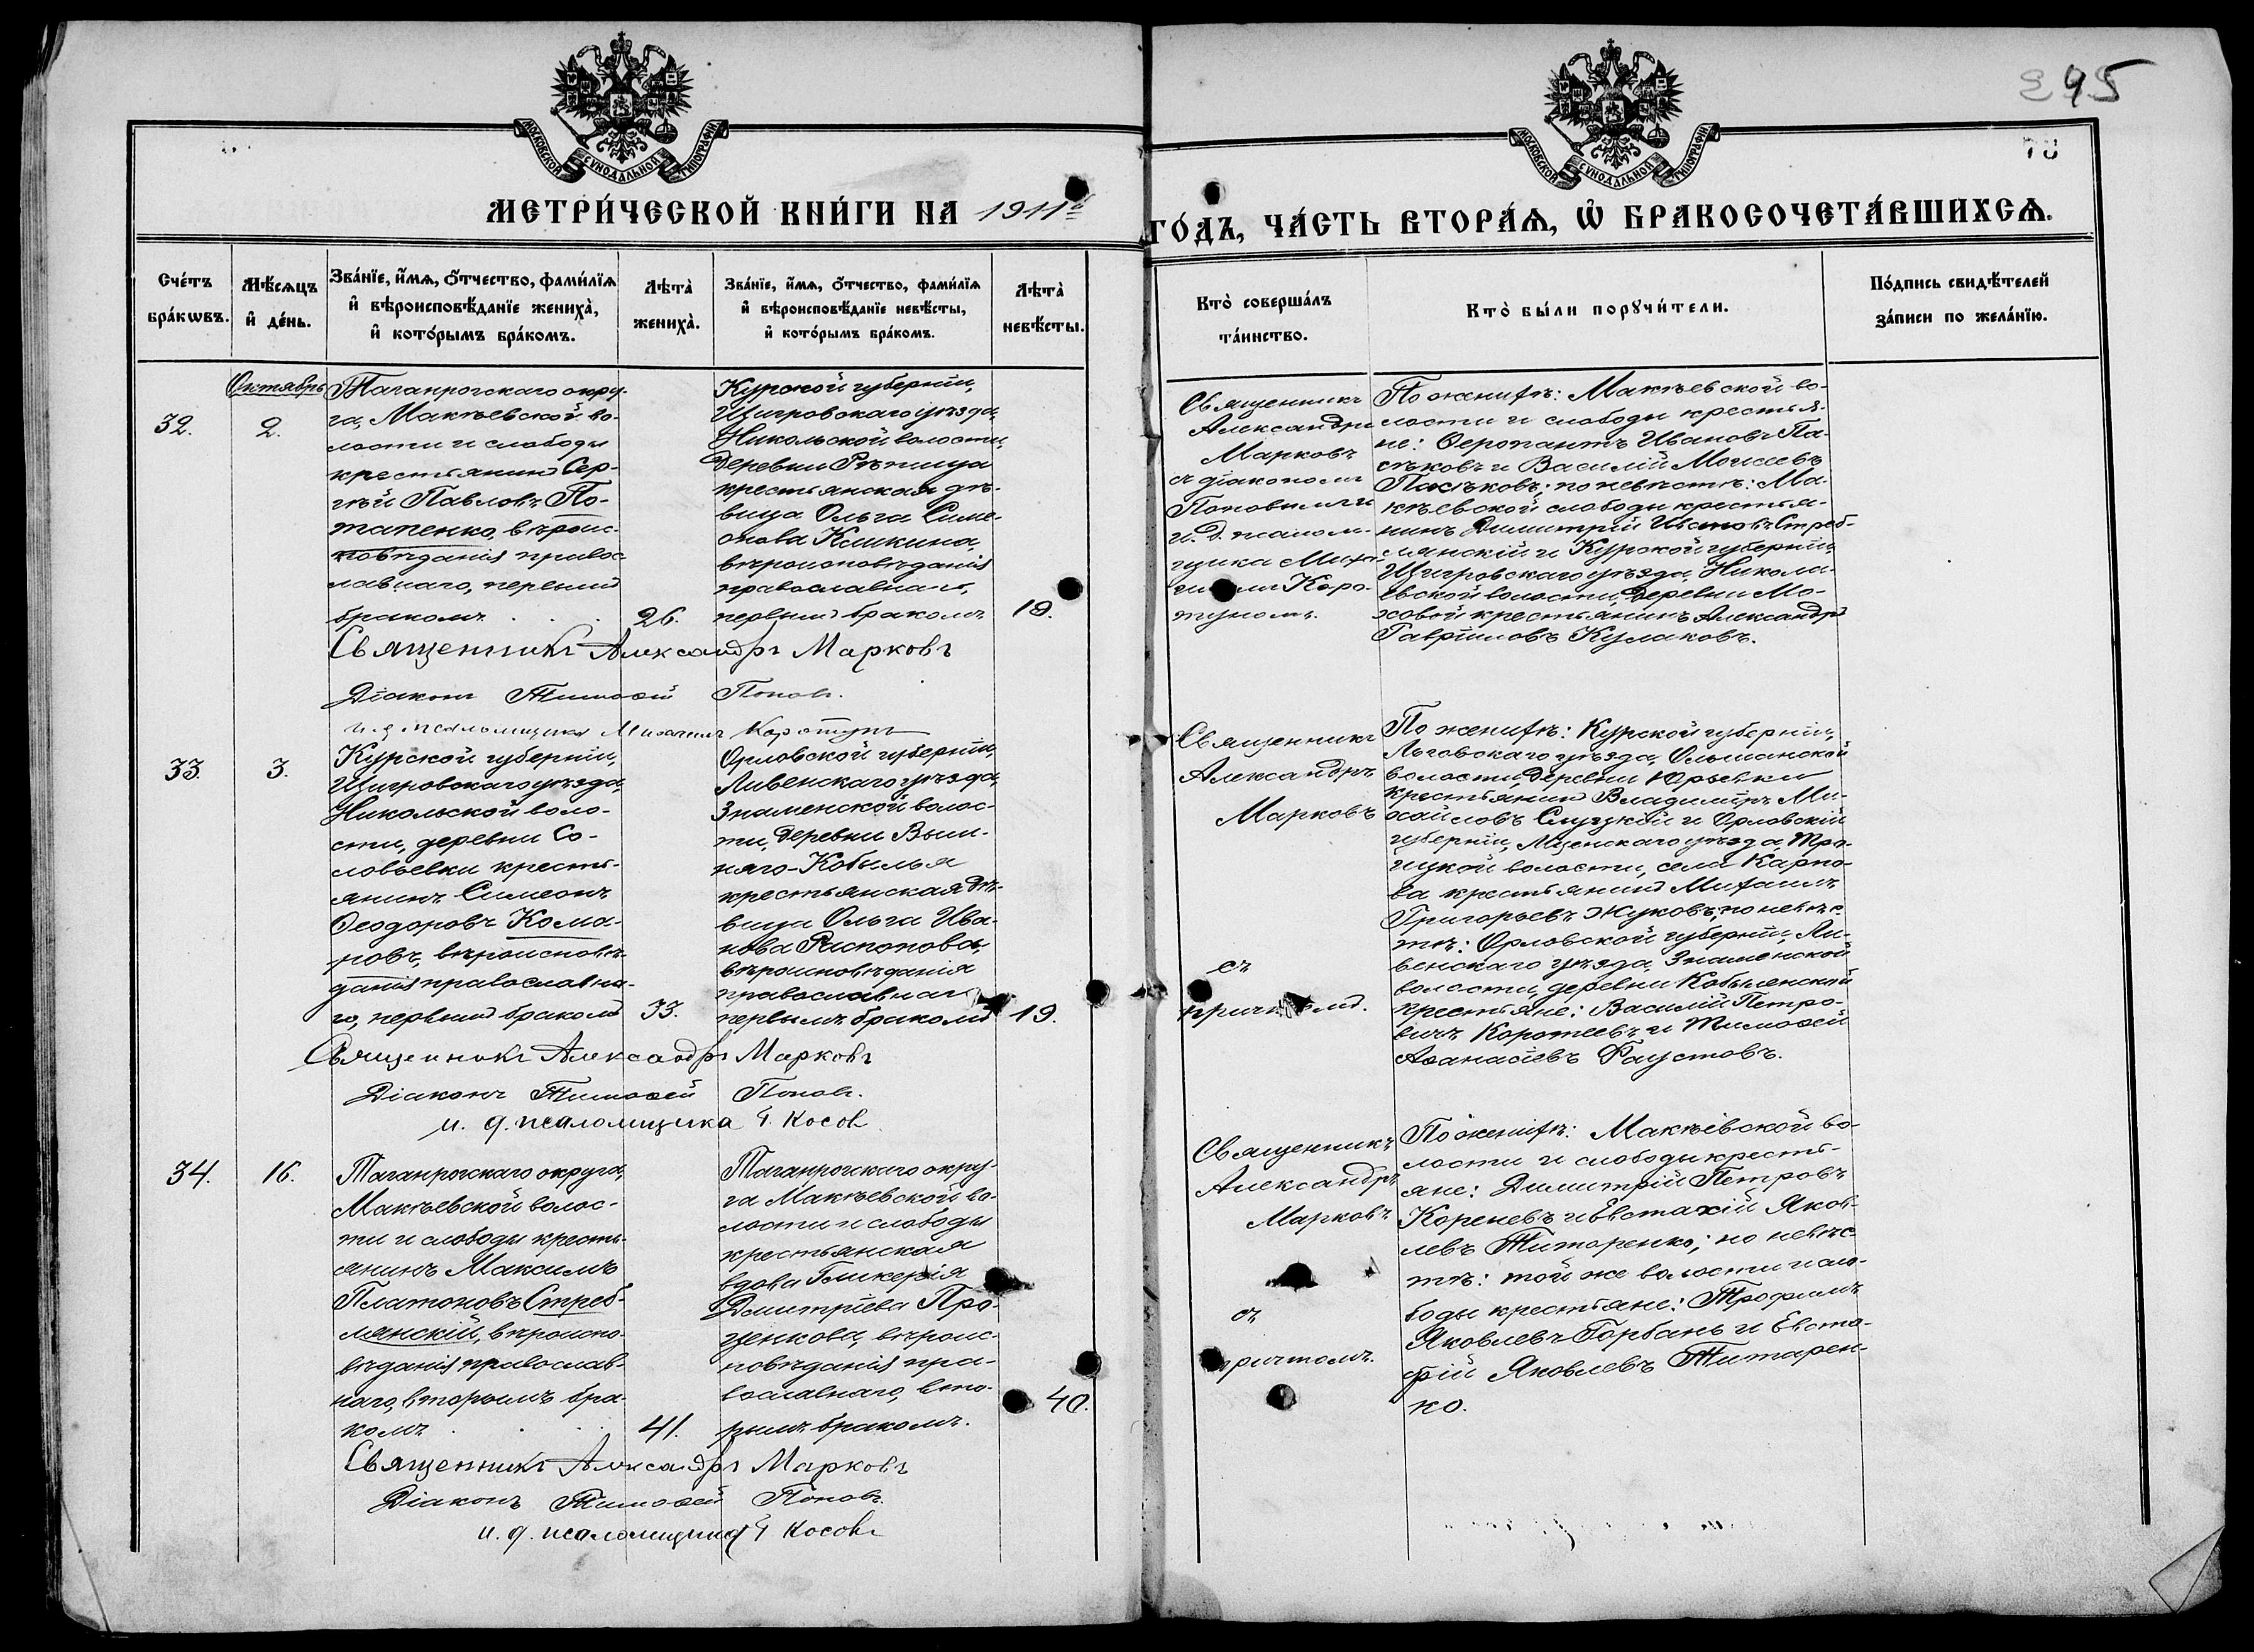 245
МОСКОВСКОЙ СѴНОДАЛЬНОЙ ТИПОГРАФІИ
МОСКОВСКОЙ СѴНОДАЛЬНОЙ ТИПОГРАФІИ
МЕТРИ́ЧЕСКОЙ КНИ́ГИ НА 1911й
ГО́ДЪ, ЧА́СТЬ ВТОРА́Ѧ, Ѽ БРАКОСОЧЕТА́ВШИХСѦ.
Сче́тъ
бра́кѡвъ.
Мѣ́сѧцъ
и҆ де́нь.
Зва́нїе, и҆́мѧ, ѻ҆́тчество, фами́лїѧ
и҆ вѣроисповѣ́данїе жениха̀,
и҆ кото́рымъ бра́комъ.
Лѣта̀
жениха̀.
Зва́нїе, и҆́мѧ, ѻ҆́тчество, фами́лїѧ
и҆ вѣроисповѣ́данїе невѣ́сты,
и҆ кото́рымъ бра́комъ.
Лѣта̀
невѣ́сты.
Кто̀ соверша́лъ
та́инство.
Кто̀ бы́ли порꙋчи́тели.
По́дпись свидѣ́телей
за́писи по жела́нїю.
32.
Октябрь
2.
Таганрогскаго окру-
га, Макѣевской во-
лости и слободы
крестьянинъ Сер-
гѣй Павловъ По-
тапенко, вѣроис-
повѣданія правос-
лавнаго, первымъ
бракомъ
26.
Курской губерніи,
Щигровскаго уѣзда,
Никольской волости,
деревни Рѣпища
крестьянская дѣ-
вица Ольга Симе-
онова Кликина,
вѣроисповѣданія
православнаго,
первымъ бракомъ
18.
Священникъ
Александръ
Марковъ
съ діакономъ
Поповымъ и
и. д. псалом-
щика Миха-
иломъ Коро-
туномъ.
По женихѣ: Макѣевской во-
лости и слободы крестья-
не: Ѳеропантъ Ивановъ Па-
сѣковъ и Василій Моисеевъ
Пасѣковъ; по невѣстѣ: Ма-
кѣевской слободы крестья-
нинъ Димитрій Ивановъ Стреб-
лянскій и Курской губерніи,
Щигровскаго уѣзда, Никола-
евской волости, деревни Мо-
ховой крестьянинъ Александръ
Гавріиловъ Кулаковъ.
Священникъ Александръ Марковъ
Діаконъ Тимоѳей Поповъ.
и. д. псаломщика Михаилъ Коротунъ
33.
3.
Курской губерніи,
Щигровскаго уѣзда,
Никольской воло-
сти, деревни Со-
ловьевки кресть-
янинъ Симеонъ
Ѳеодоровъ Кома-
ровъ, вѣроисповѣ-
данія православна-
го, первымъ бракомъ
33.
Орловской губерніи,
Ливенскаго уѣзда,
Знаменской волос-
ти, деревни Выш-
няго-Кобылья
крестьянская дѣ-
вица Ольга Ива-
нова Распопова,
вѣроисповѣданія
православнаго
первымъ бракомъ
19.
Священникъ
Александръ
Марковъ
съ
причтомъ.
По женихѣ: Курской губерніи,
Льговскаго уѣзда, Ольшанской
волости, деревни Юрьевки
крестьянинъ Владиміръ Ми-
хайловъ Слуцкій и Орловской
губерніи, Мценскаго уѣзда, Тро-
ицкой волости, села Карпо-
ва крестьянинъ Михаилъ
Григорьевъ Жуковъ; по невѣс-
тѣ: Орловской губерніи, Ли-
венскаго уѣзда, Знаменской
волости, деревни Кобыленской
крестьяне: Василій Петро-
вичъ Коротеевъ и Тимоѳей
Аѳанасіевъ Фаустовъ.
Священникъ Александръ Марковъ
Діаконъ Тимоѳей Поповъ.
и. д. псаломщика Г. Косовъ
34.
16.
Таганрогскаго округа,
Макѣевской волос-
ти и слободы кресть-
янинъ Максимъ
Платоновъ Стреб-
лянскій, вѣроиспо-
вѣданія православ-
наго, вторымъ бра-
комъ
41.
Таганрогскаго окру-
га Макѣевской во-
лости и слободы
крестьянская
вдова Гликерія
Дмитріева Про-
ценкова, вѣроис-
повѣданія пра-
вославнаго, вто-
рымъ бракомъ.
40.
Священникъ
Александръ
Марковъ
съ
причтомъ.
По женихѣ: Макѣевской во-
лости и слободы кресть-
яне: Димитрій Петровъ
Кореневъ и Евстахій Яков-
левъ Титаренко; по невѣс-
тѣ: той же волости и сло-
боды крестьяне: Трофимъ
Яковлевъ Горбань и Евста-
фій Яковлевъ Титарен-
ко.
Священникъ Александръ Марковъ
Діаконъ Тимоѳей Поповъ.
и. д. псаломщика Г. Косовъ